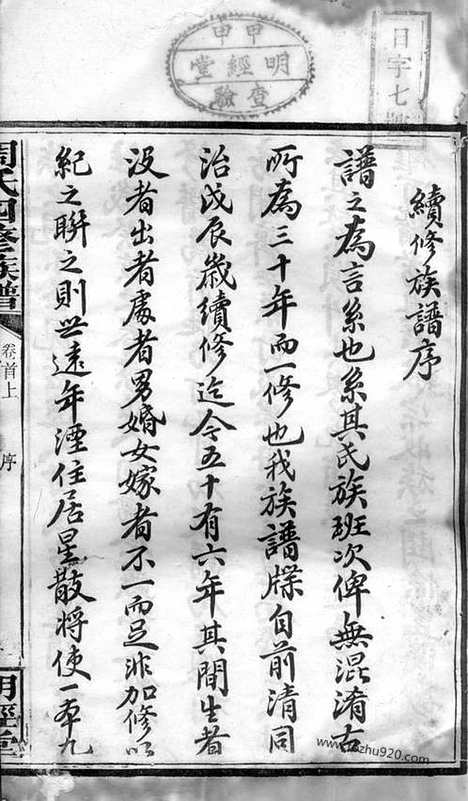 續修族譜序
譜之為言系也系其氏族班次俾無混淆古
所為三十年而一修也我族譜牒自前清同
治戊辰歲續修迄今五十有六年其間生者
沒者出者處者男婚女嫁者不一而足非加修以
紀之聯之則世遠年湮住居星散將使一本九
周氏四修族譜
卷首上
序
明經堂
甲申
明經堂
查驗
日字七
www.jiazhu920.com